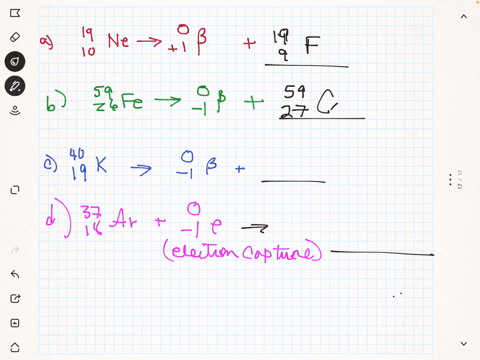 a) ¹⁹₁₀ Ne → ⁰₊₁ β + ¹⁹₉ F
b) ⁵⁹₂₆ Fe → ⁰₋₁ β + ⁵⁹₂₇ C
c) ⁴⁰₁₉ K → ⁰₋₁ β + ____
d) ³⁷₁₈ Ar + ⁰₋₁ e → ____
(electron capture)
17 / 17